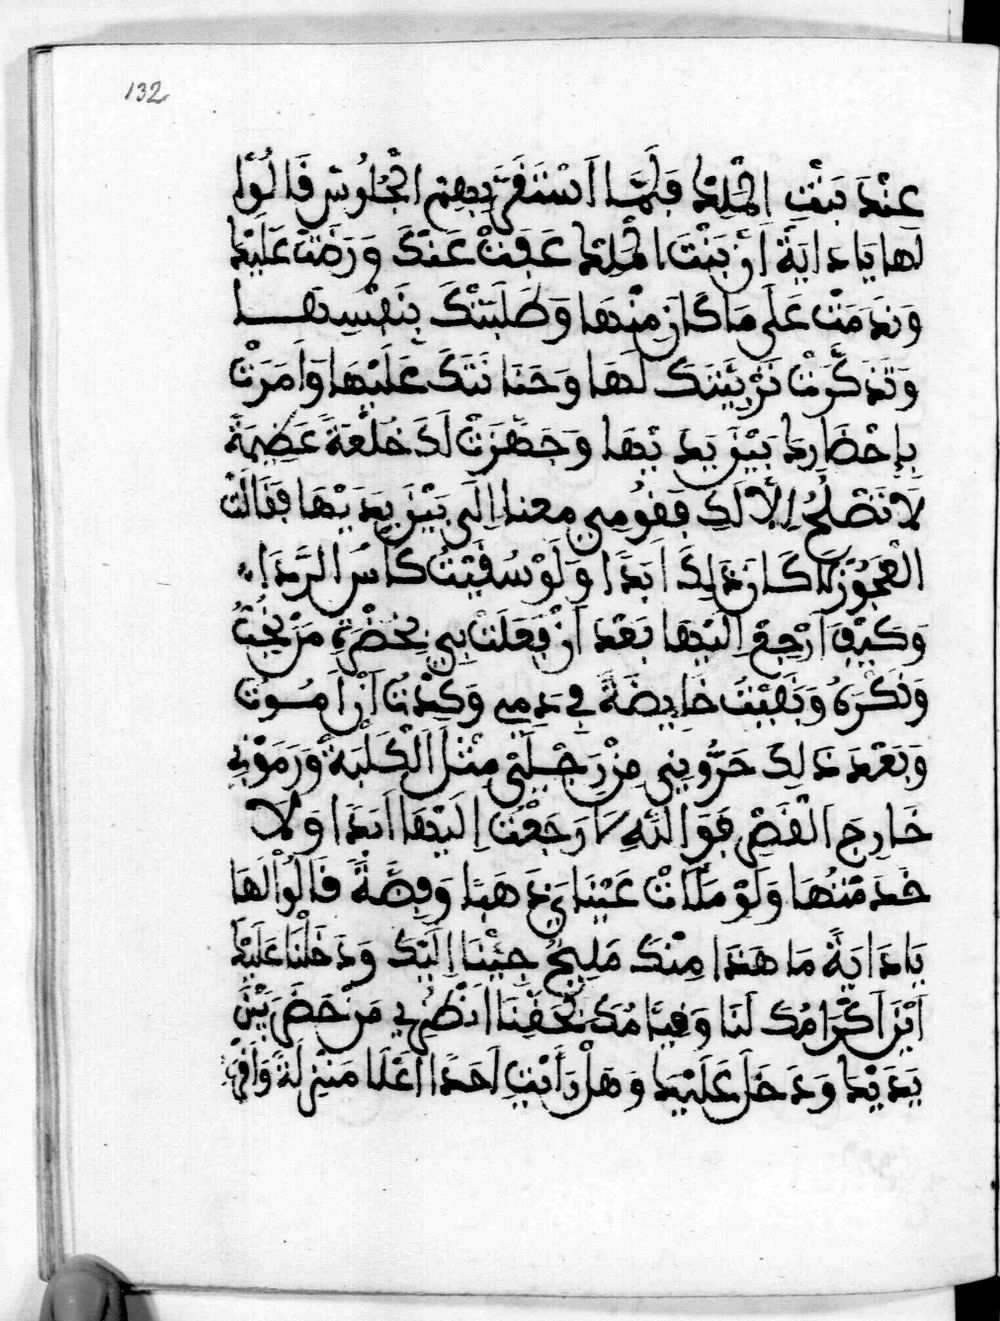 132
عِنْدَ بَنْتِ الْمَلِكْ فَلَمَّا اَسْتَقَرَّ بِهِمْ الْجُلُوسْ قَالُوا
لَهَا يَا دَايَةْ اَنْ بَنْتَ الْمَلِكْ عَفَتْ عَنكَ وَرَضَتْ عَلَيْك
وَنَدَمَتْ عَلَى مَا كَانَ مِنْهَا وَطَلَبَتْكَ بِنَفْسِهَا
وَتَذَكَّرَتْ تَرْبِيَتَكَ لَهَا وَحَنَانَتَكَ عَلَيْهَا وَاَمَرَتْ
بِإحْضَارِك بَيْنَ يَدَيْهَا وَجَهَّزَتْ لَكَ خَلْعَةً عَضِيمَةً
لَا تَصْلُحُ اِلَّا لَكِ فَقُومِي معنا اِلَى بَيْنَ يَدَيْهَا فَقَالَتْ
الْعَجُوزْ لَا كَانَ ذَلِكَ اَبَدًا وَلَوْ سُقَيْتُ كَاسُ الرَّدَا
وَكَيْفَ اَرْجِعْ اِلَيْهَا بَعْدَ اَنْ فَعَلَتْ بِي بِحَضْرَةِ مَنْ يُحِبُّ
وَيَكْرَهْ وَبَقَيْتُ خَايِضَةً فِي دَمِي وَكِدْتُ اَنْ اَمُوتَ
وَبَعْدَ ذَلِكَ جَرُّونِي مِنْ رِجْلَيَّ مِثْلَ الْكَلْبَةْ وَرَمَوْنِي
خَارِجَ الْقَصْرِ فَوَاللَّهِ لَا رَجَعْتُ اِلَيْهَا اَبَدًا وَلَا
خَدَمْتُهَا وَلَوْ مَلَأَتْ عَيْنَايَ ذَهَبًا وَفِضَّةً قَالُوا لَهَا
يَا دَايَةً مَا هَذَا مِنْكَ مَلِيحُ جِيْنَا اِلَيْكَ وَدَخَلْنَا عَلَيْك
اَيْنَ اَكْرَامُكَ لَنَا وَقِيَامُكَ بِحَقِّنَا اَنْظُرِي مَنْ حَضَرَ بَيْنَ
يَدَيْك وَدَخَلَ عَلَيْك وَهَلْ رَأَيْتِ اَحَدًا اَعْلَا مَنْزِلَةً وَاَقْرَبْ